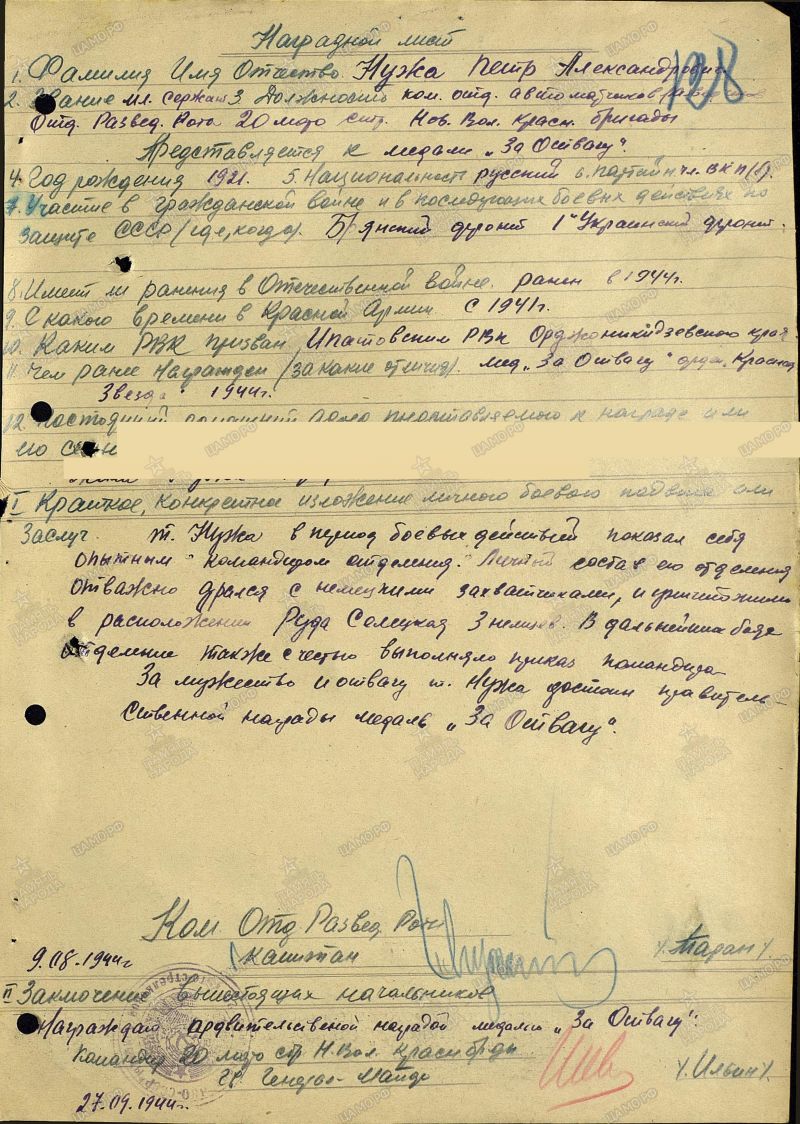 Наградной лист
128
1. Фамилия Имя Отчество Нужа Петр Александрович
2. Звание мл. сержант 3 Должность ком. отд. автоматчиков
Отд. Развед. Рота 20 мото стр. Нов. Вол. красн. бригады
Представляется к медали „За Отвагу".
4. Год рождения 1921. 5. Национальность русский 6. партийн чл. вкп(б).
7. Участие в гражданской войне и в последующих боевых действиях по
защите СССР (где, когда). Брянский фронт 1й Украинский фронт.
8. Имеет ли ранения в Отечественной войне. ранен в 1944г.
9. С какого времени в Красной Армии с 1941г.
10. Каким РВК призван Ипатовским РВК Орджоникидзевского края
11. Чем ранее награжден (за какие отличия). мед. „За Отвагу" орден. Красная
Звезда 1944г.
12. постоянный домашний адрес представляемого к награде или
его
I Краткое, конкретное изложение личного боевого подвига или
Заслуг. т. Нужа в период боевых действий показал себя
опытным командиром отделения. Личный состав его отделения
отважно дрался с немецкими захватчиками, и уничтожили
в расположении Руда Селецкая 3 немцев. В дальнейших боях
отделение также с честью выполняло приказ командира
За мужество и отвагу т. Нужа достоин правитель-
ственной награды медаль „За Отвагу".
Ком Отд Развед Роты
9.08.1944г капитан /Таран/
II Заключение вышестоящих начальников
Награждаю правительственной наградой медалью „За Отвагу".
Командир 20 мото стр Н. Вол. Красн бр-ды
Гв. Генерал-Майор /Ильин/.
27.09.1944г.